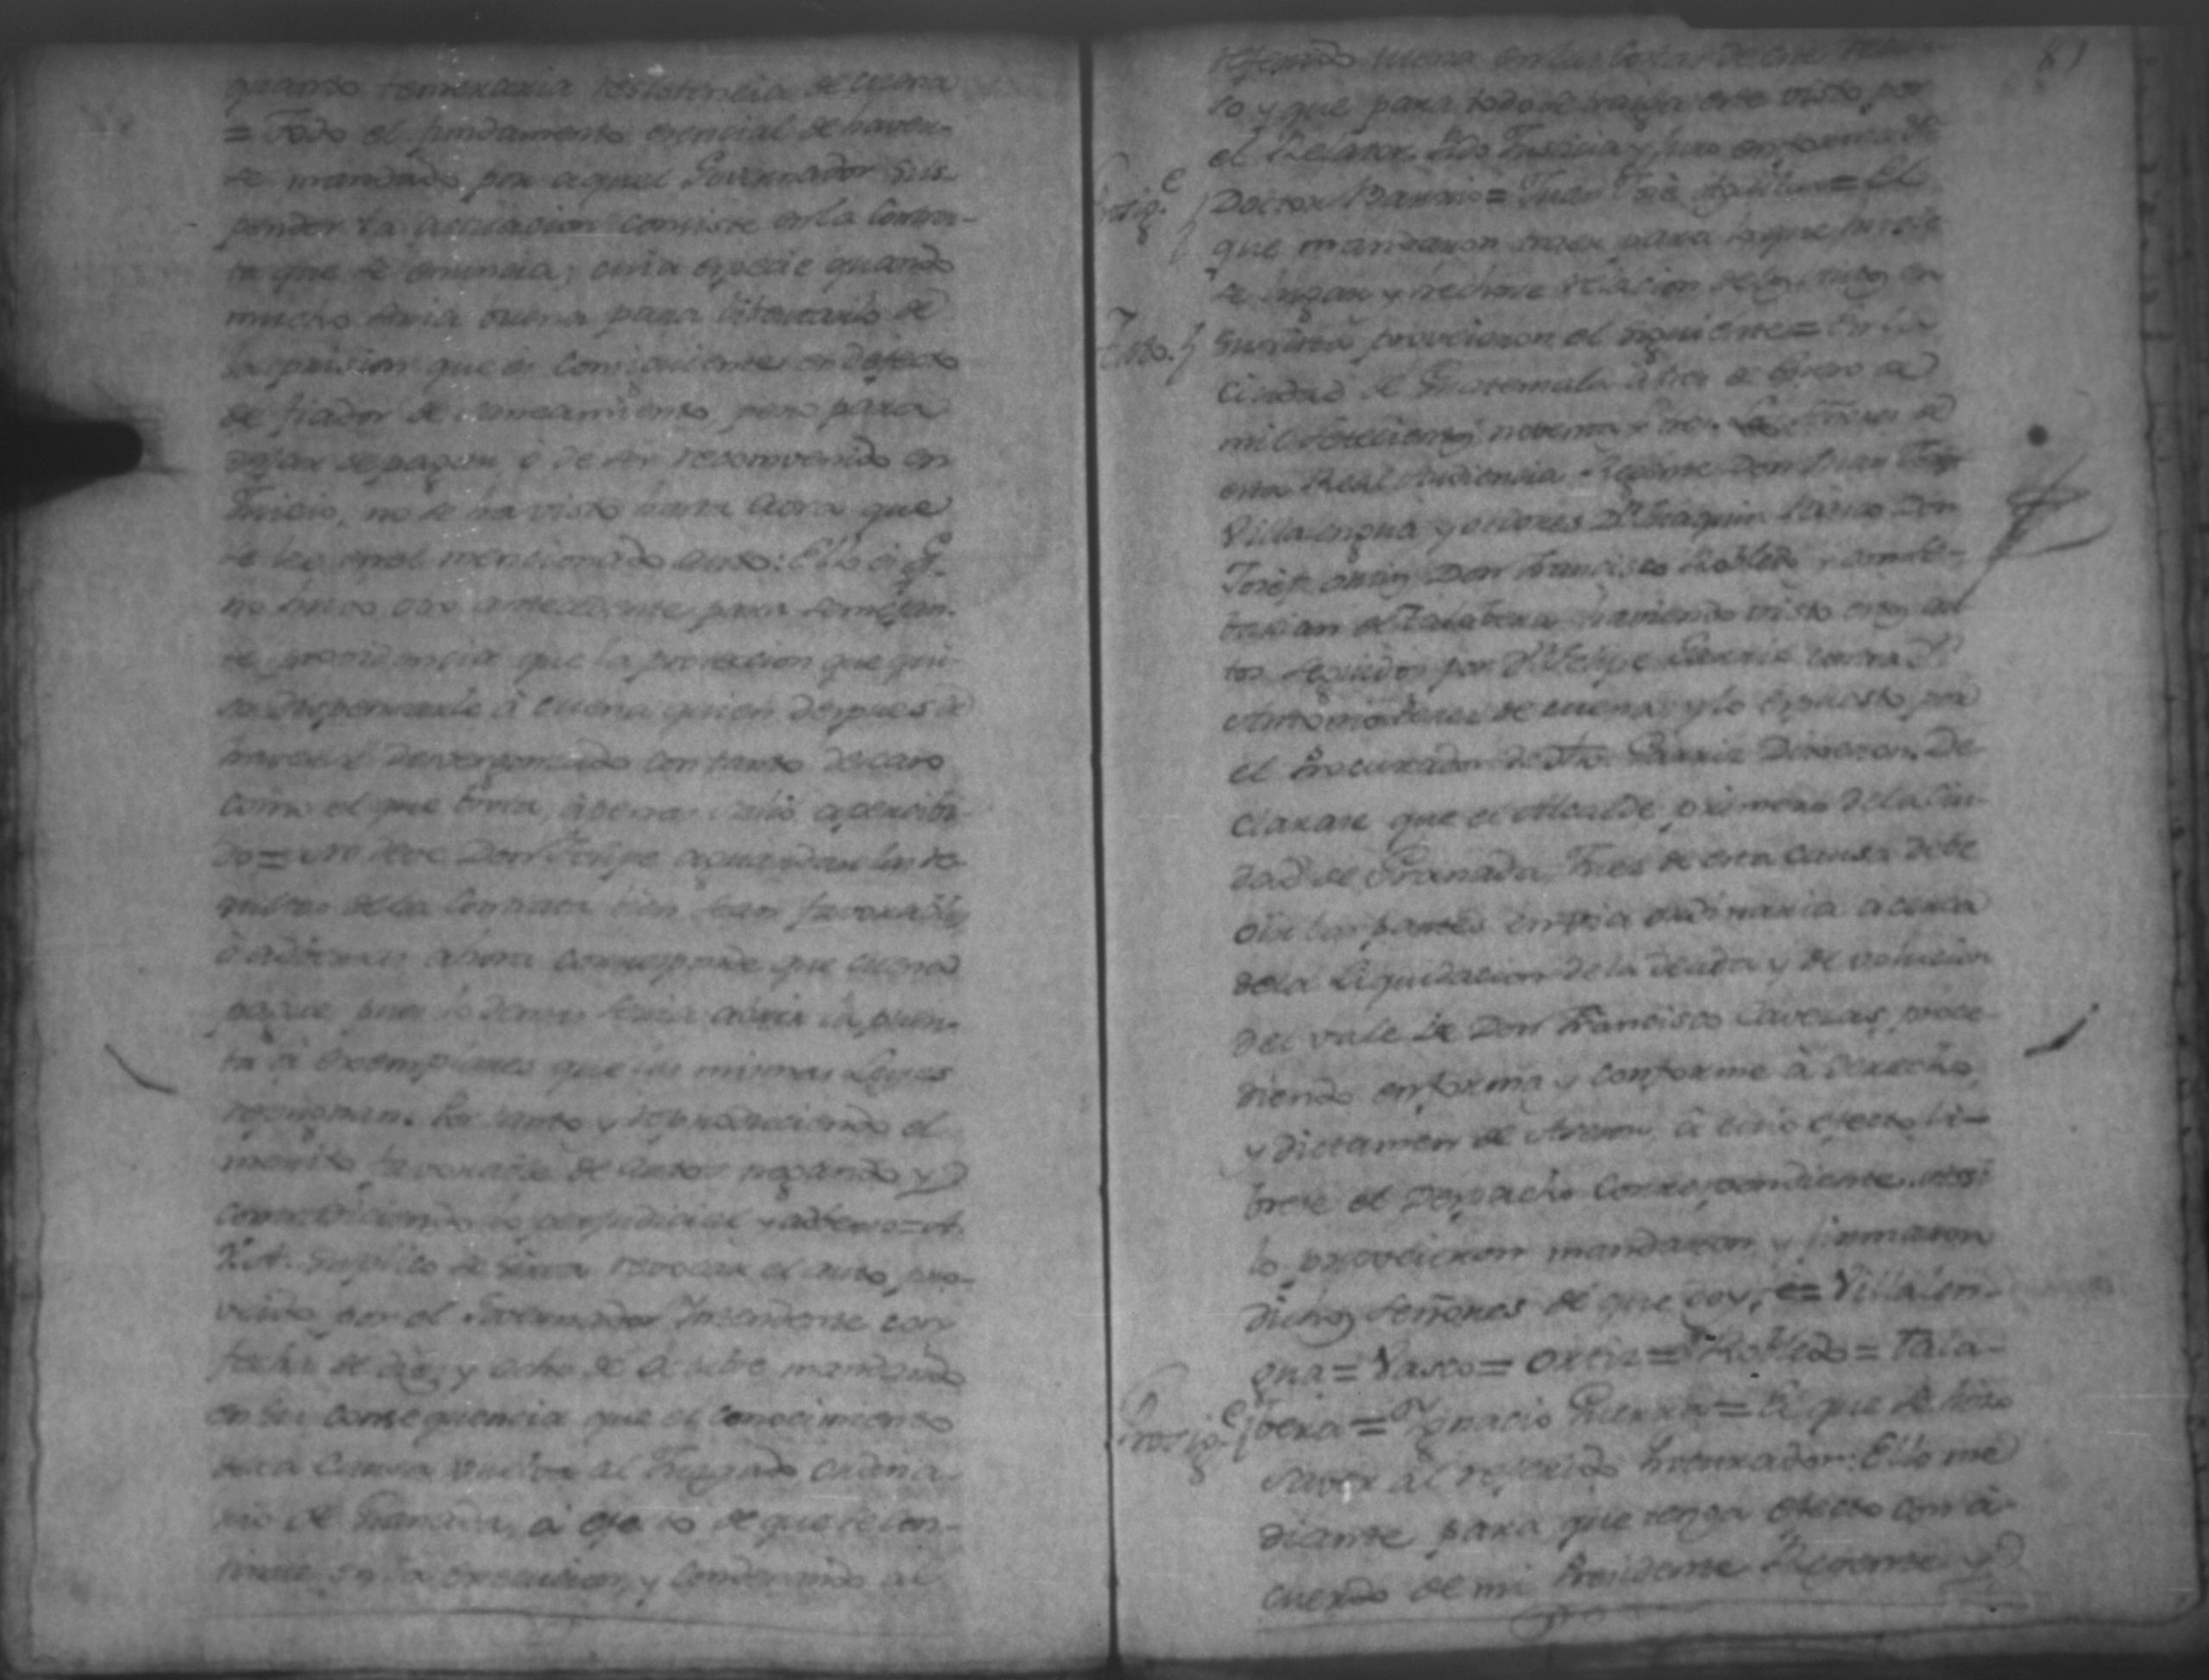 quando temeraria resistencia de Cuena
= Todo el fundamento esencial de haver-
se mandado por aquel Governador sus-
pender la actuacion consiste en la Contra-
ta que se enuncia; cuia especie quando
mucho seria buena para libertarlo de
la prision que es consiguiente en defecto
de fiador de saneamiento pero para
dejar de pagar, ó de ser reconvenido en
Juicio, no se ha visto hasta aora que
se lee en el mencionado auto: Ello es q.
no huvo otro antecedente para semejan-
te providencia que la proteccion que qui-
so dispensarle á Cuena quien despues de
con tanto descaro
como el que
do = No deve Don Felipe aguardar las re-
sultas de la Contrata bien sean favorables
ó adversas ahora corresponde que Cuena
pague pues lo demas seria abrir la puer-
ta á exemplares que las mismas Leyes
repugnan. Por tanto y reproduciendo el
merito favorable de autos negando y
contradiciendo lo perjudicial y adverso = A
V.A. suplico se sirva revocar el auto pro-
veido por el Governador Intendente con
fecha de diez y ocho de Octubre mandando
en su consequencia que el conocimiento
de la Causa vuelva al Juzgado ordina-
rio de Granada, á efecto de que se con-
tinue en la execucion, y condenando al
81
referido Cuena en las Costas de este
so y que para todo se traiga este visto por
el Relator. Pido Justicia y juro en forma &
Prosig.e
Doctor Barrio = Juan José Aguilar = El
que mandaron traer para lo que huvie
se lugar y hechose relacion de los autos en
Auto.
su vista proveieron el siguiente = En la
Ciudad de Guatemala á tres de Enero de
mil setecientos noventa y tres. Los Señores de
esta Real Audiencia Regente Don Juan Josef
Villalengua y oidores Dn. Joaquin Vasco Don
Josef Ortiz Don Francisco Robledo y
Talabera haviendo visto estos au
tos seguidos por Dn. Felipe Gannia contra Dn.
Antonio de Cuena y lo expuesto por
el Procurador de dho. Gannia Dixeron. De-
clarase que el Alcalde primero de la Ciu-
dad de Granada, Juez de esta Causa debe
oir las partes en via ordinaria acerca
de la Liquidacion de la deuda y devolucion
del vale de Don Francisco Cavezas, proce-
diendo en forma y conforme á derecho,
y dictamen de Asesor, á cuio efecto li-
brese el Despacho Correspondiente. assi
lo proveieron mandaron y firmaron
dichos Señores de que doy fé = Villalen-
gua = Vasco = Ortiz = Robledo = Tala-
Prosig.e
bera = Ygnacio Guerra = El que se hizo
saver al referido Procurador: Ello me
diante para que tenga efecto con a-
cuerdo de mi Presidente Regente y